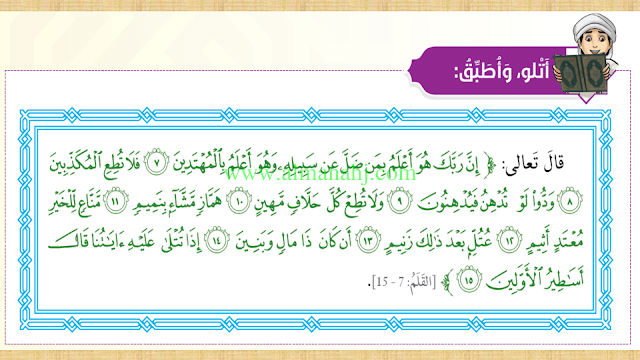 أَتْلو، وَأُطَبِّقُ:
قالَ تَعالى: ﴿ إِنَّ رَبَّكَ هُوَ أَعْلَمُ بِمَن ضَلَّ عَن سَبِيلِهِۦ وَهُوَ أَعْلَمُ بِٱلْمُهْتَدِينَ ٧ فَلَا تُطِعِ ٱلْمُكَذِّبِينَ
٨ وَدُّوا۟ لَوْ تُدْهِنُ فَيُدْهِنُونَ ٩ وَلَا تُطِعْ كُلَّ حَلَّافٍ مَّهِينٍ ١٠ هَمَّازٍ مَّشَّآءٍۭ بِنَمِيمٍ ١١ مَّنَّاعٍ لِّلْخَيْرِ
مُعْتَدٍ أَثِيمٍ ١٢ عُتُلٍّۭ بَعْدَ ذَٰلِكَ زَنِيمٍ ١٣ أَن كَانَ ذَا مَالٍ وَبَنِينَ ١٤ إِذَا تُتْلَىٰ عَلَيْهِ ءَايَٰتُنَا قَالَ
أَسَٰطِيرُ ٱلْأَوَّلِينَ ١٥ ﴾ [القَلَمُ: 7 - 15].
www.almanahj.com